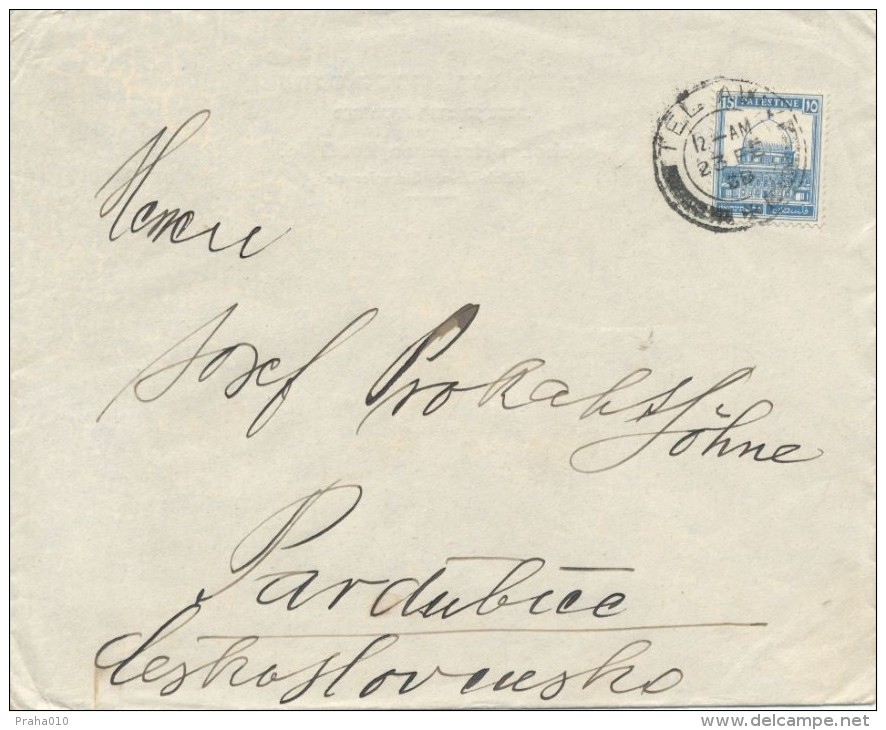 TEL AVIV
15 PALESTINE 15
12-AM
23 FE
Herrn
Josef Prokat Söhne
Pardubice
Československo
Praha010
www.delcampe.net